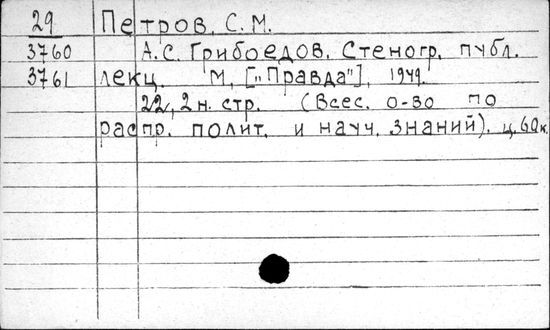 29 Петров, С. М.
3760 А. С. Грибоедов. Стеногр. публ.
3761 лекц. М, ["Правда"], 1949.
22, 2 н. стр. (Всес. о-во по
распр. полит. и науч. знаний). ц. 60 к.